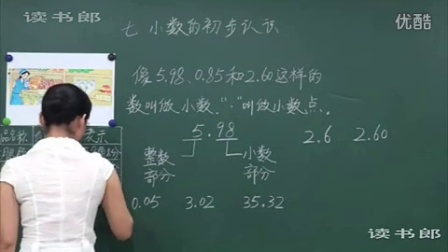 读书郎
优酷
七 小数的初步认识
像5.98、0.85和2.60这样的
数叫做小数。“·”叫做小数点。
5.98 2.6 2.60
整数部分 小数部分
0.05 3.02 35.32
读书郎